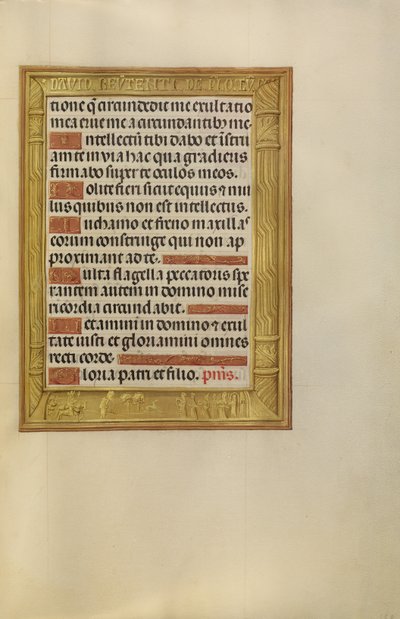 DAVID
tione q̄ circundedit me exultatio
mea erue me a circundantibꝫ me
Intellectū tibi dabo et īstru
am te in via hac qua gradieris
firmabo super te oculos meos.
Nolite fieri sicut equus ⁊ mu
lus quibus non est intellectus.
In chamo et freno maxillas
eorum constringe qui non ap
proximant ad te.
Multa flagella peccatoris spe
rantem autem in domino mise
ricordia circundabit.
Letamini in domino ⁊ exul
tate iusti et gloriamini omnes
recti corde.
Gloria patri et filio. pm̄s.